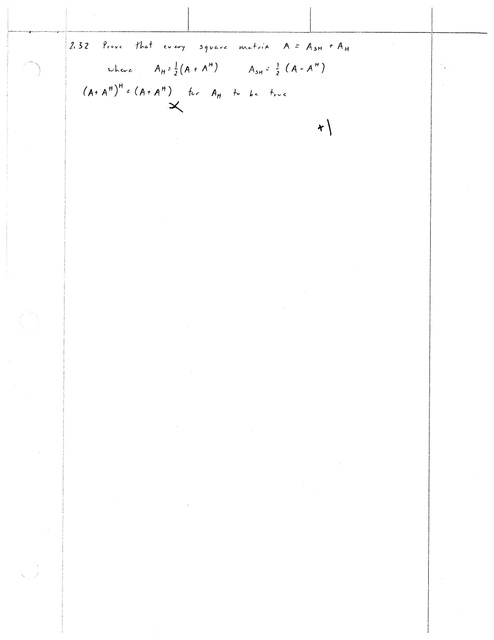 2.32 Prove that every square matrix A = A_SH + A_H
where A_H = 1/2 (A + A^H) A_SH = 1/2 (A - A^H)
(A + A^H)^H = (A + A^H) for A_H to be true
x
+1